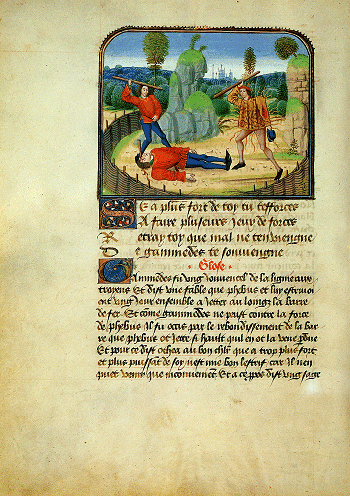 Se a plus fort de toy tu tefforces
A faire pluseurs Jeuz de forces
Retray toy que mal ne ten viengne
De ganimedes te souviengne
Glose
Ganimedes fu ung Jouvencel de la ligne aux
troyens Et dist une fable que phebus et luy estrivoi
ent ung Jour ensemble a Jetter au long la barre
de fer Et come ganimedes ne peust contre la force
de phebus Il fu occis par le rebondissement de la bar
re que phebus ot Jette si hault quil en ot la veue pdue
Et pour ce dist othea au bon chlr que a trop plus fort
et plus puissant de soy nest mie bon lestrif car Il nen
puet venir que inconvenient Et a ce ppos dist ung sage